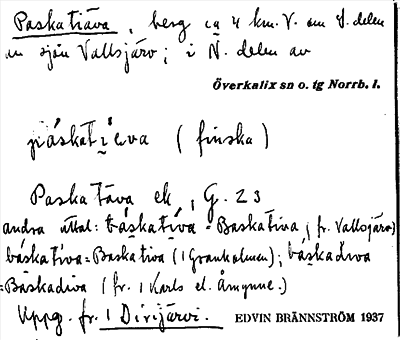 Paskatiäva, berg ca 4 km. V. om S. delen
av sjön Vallsjärv; i N. delen av
Överkalix sn o. tg Norrb. l.
páskati̯eva (finska)
Paskatäva ek, G. 23
andra uttal: báskatíva = Baskativa, fr. Vallsjärv)
báskatíva = Baskativa (i Granholmen); báskadiva
= Baskadiva (fr. i Karls el. Åmynne.)
Uppg. fr. i Dirijärvi. EDVIN BRÄNNSTRÖM 1937